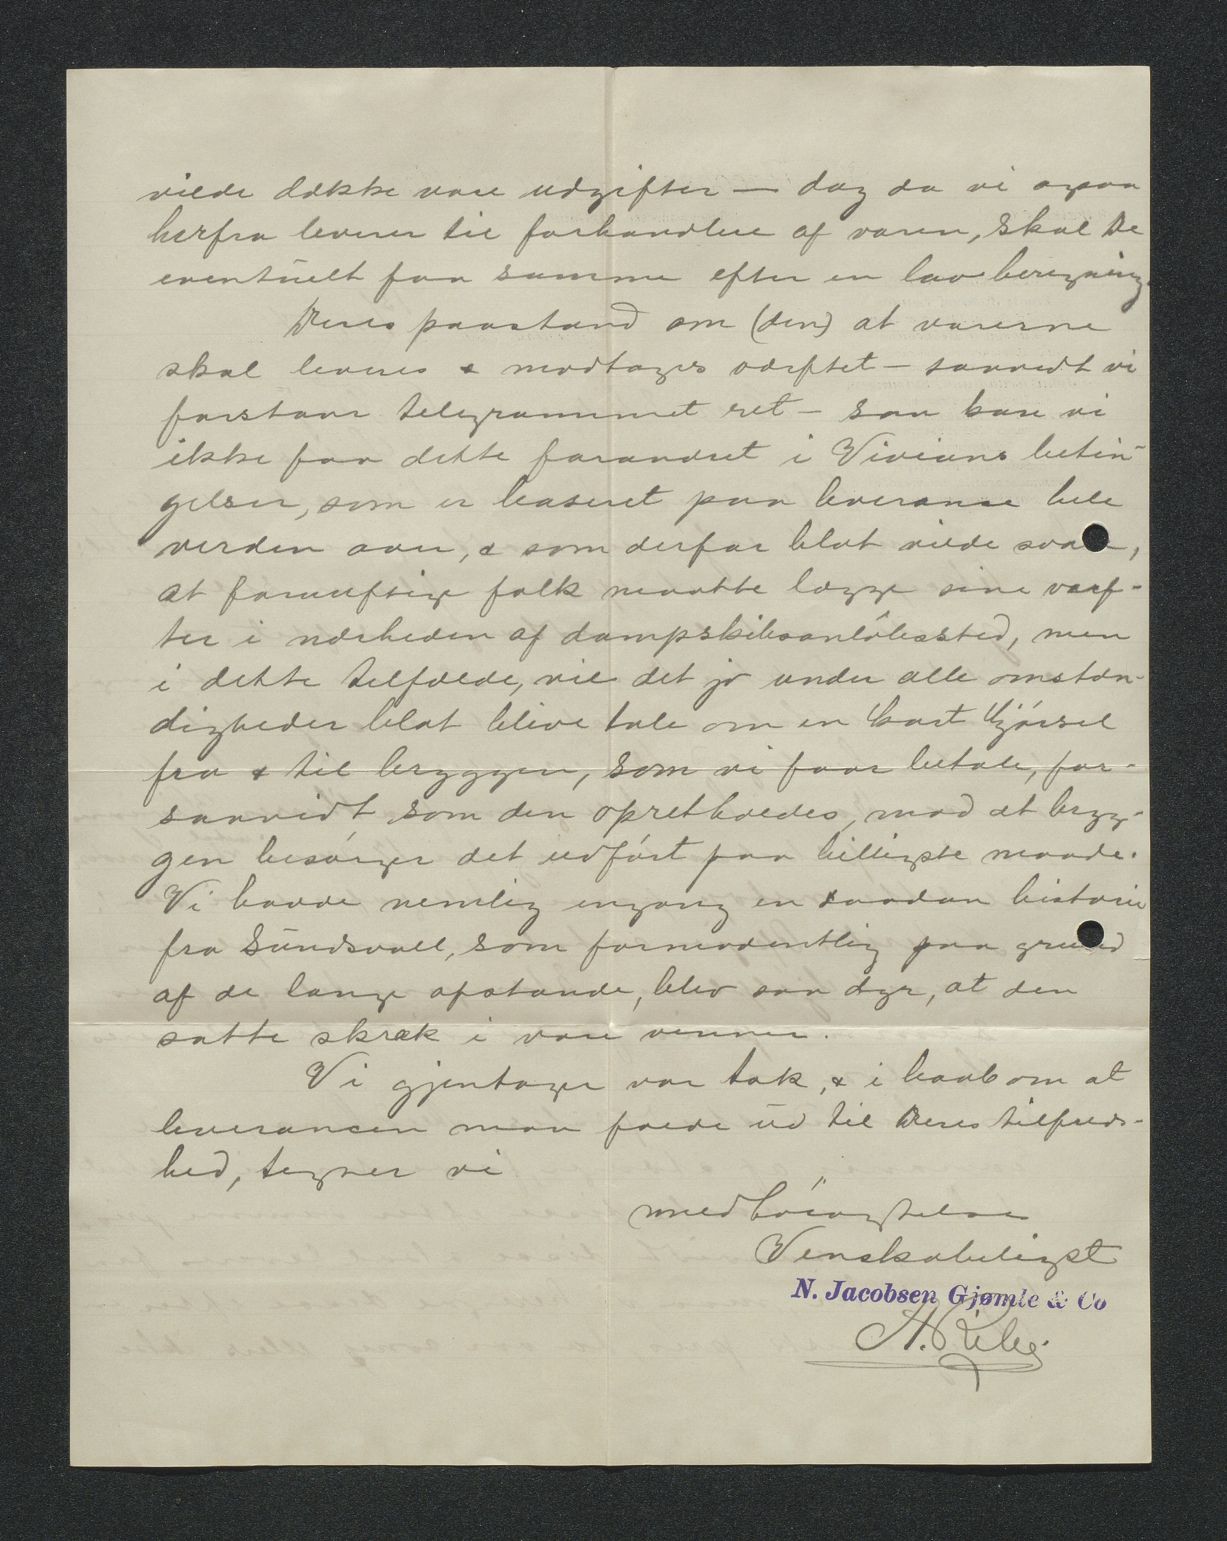 vilde dække vore udgifter — dog da vi ogsaa
herfra leverer til forhandlere af varen, skal De
eventuelt faa samme efter en lav beregning.
Deres paastand om (den) at varerne
skal leveres & modtages værftet — saavidt vi
forstaar telegrammet ret — saa kan vi
ikke faa dette forandret i Vivians betin-
gelser, som er baseret paa leveranse hele
verden over, & som derfor blot vilde svare,
at fornuftige folk maatte lægge sine værf-
ter i nærheden af dampskibsanløbssted, men
i dette tilfælde, vil det jo under alle omstæn-
digheder blot blive tale om en kort kjørsel
fra & til bryggen, som vi faar betale, for-
saavidt som den opretholdes, mod at bryg-
gen besørger det udført paa billigste maade.
Vi havde nemlig engang en saadan historie
fra Sundsvall, som formodentlig paa grund
af de lange afstande, blev saa dyr, at den
satte skræk i vore venner.
Vi gjentager vor tak, & i haab om at
leverancen maa falde ud til Deres tilfreds-
hed, tegner vi
med høiagtelse
Venskabeligst
N. Jacobsen Gjømle & Co